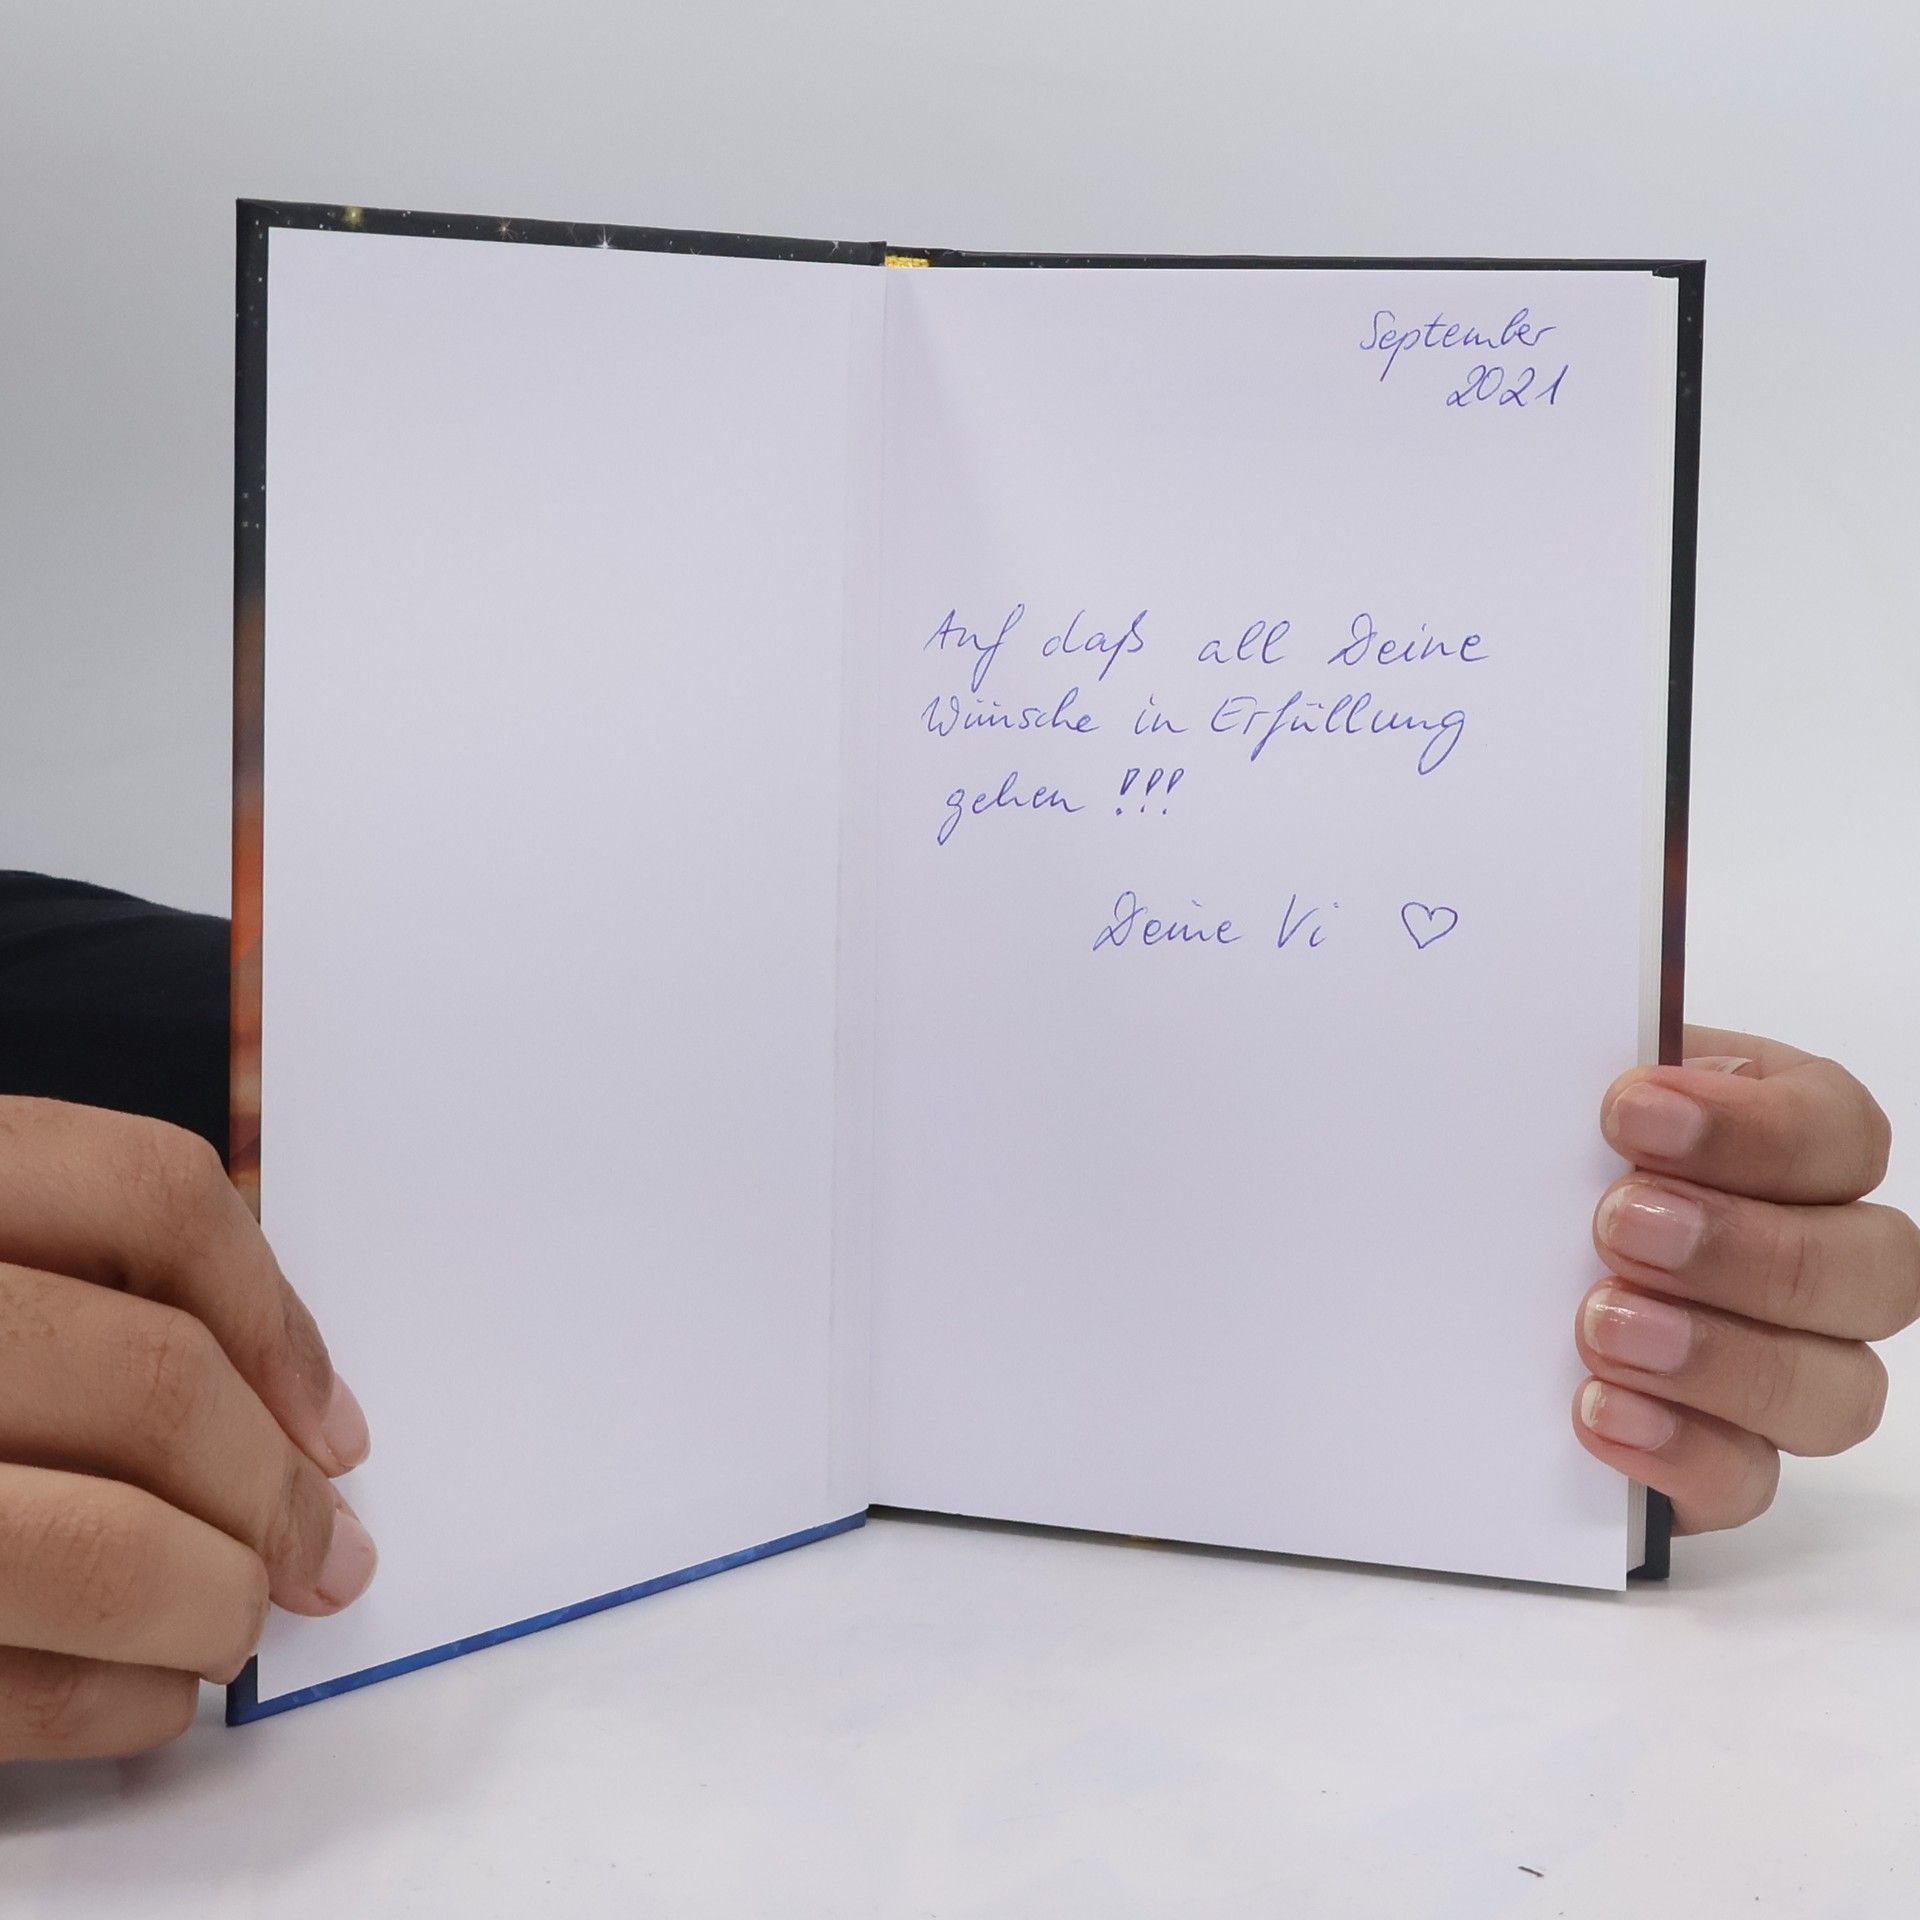 September
2021
Auf daß all Deine
Wünsche in Erfüllung
gehen !!!
Deine Vi ♡